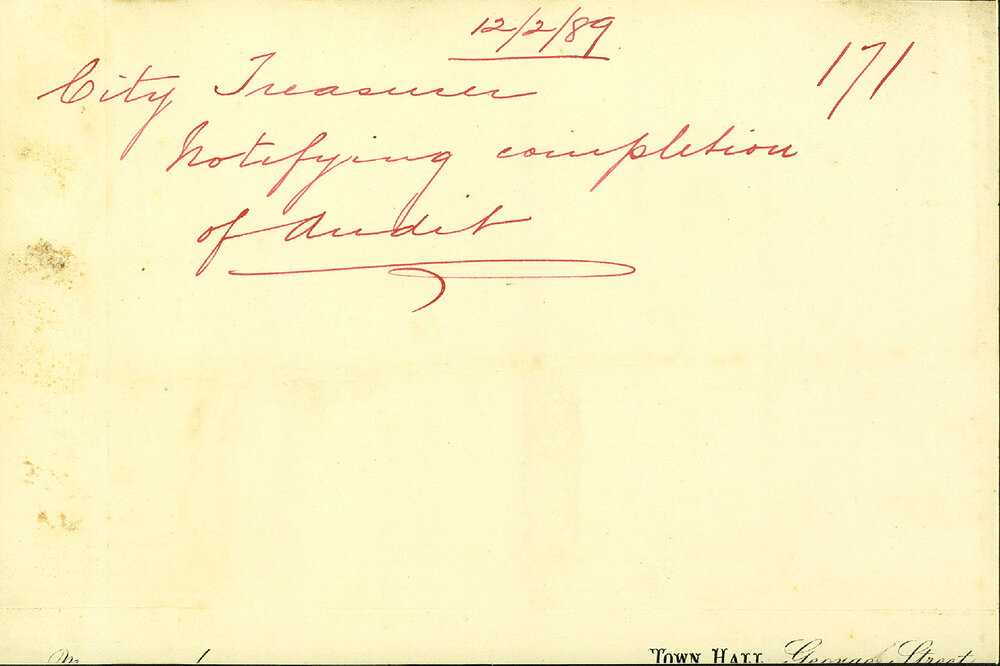 12/2/89
171
City Treasurer
Notifying completion
of Audit
TOWN HALL, George Street